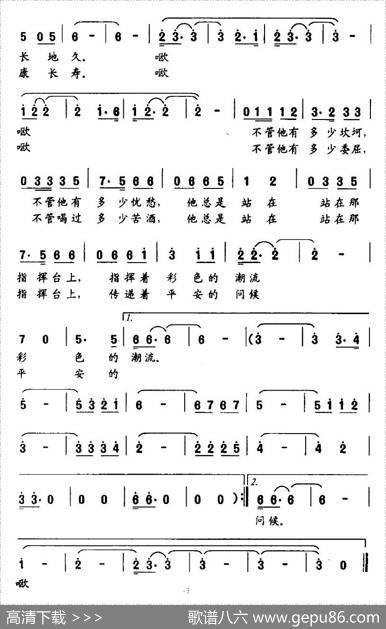 5 05 5 | 6 - | 6 - | 2 3·3 | 3 2·1 | 2 3·3 | 3 - |
长 地 久。 呦
康 长 寿。 呦
1 2 2 | 2 1·6 | 1 2 2 | 2 - | 0 1 1 1 2 | 3·2 3 3 |
呦 不管他有 多 少坎坷,
呦 不管他有 多 少委屈,
0 3 3 3 5 | 7·5 6 6 | 0 6 6 5 | 1 2 | 0 3 3 5 |
不管他有 多 少忧愁, 他总是 站 在 站在那
不管喝过 多 少苦酒, 他总是 站 在 站在那
7·5 6 6 | 0 6 6 1 | 3 1 1 | 2 2·2 | 2 - |
指 挥台上, 指挥着 彩 色的 潮流
指 挥台上, 传递着 平 安的 问候
1.
7 0 | 5·5 | 6 6·6 | 6 - | (3 - | 3 3·4 |
彩 色 的 潮流。
平 安 的
5 - | 5 3 2 1 | 6 - | 6 7 6 7 | 5 - | 5 1 1 2 |
3 - | 3 3 3 4 | 2 - | 2 2 2 5 | 4 - | 4 2 |
2.
3 3·0 | 0 0 | 6 6·0 | 0 0 ) :‖ 6 6·6 | 6 - |
问候。
1 - | 2 - | 2 3·3 | 3 - | 3 - | 3 0 ‖
呦
- 3
高清下载 >>>
歌谱八六 www.gepu86.com